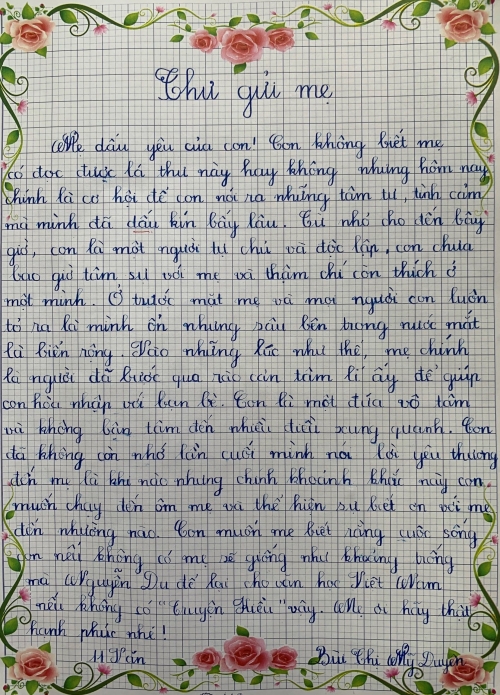 Thư gửi mẹ
Mẹ dấu yêu của con! Con không biết mẹ
có đọc được lá thư này hay không nhưng hôm nay
chính là cơ hội để con nói ra những tâm tư, tình cảm
mà mình đã dấu kín bấy lâu. Từ nhỏ cho đến bây
giờ, con là một người tự chủ và độc lập, con chưa
bao giờ tâm sự với mẹ và thậm chí con thích ở
một mình. Ở trước mặt mẹ và mọi người con luôn
tỏ ra là mình ổn nhưng sâu bên trong nước mắt
là biển rộng. Vào những lúc như thế, mẹ chính
là người đã bước qua rào cản tâm lí ấy để giúp
con hòa nhập với bạn bè. Con là một đứa vô tâm
và không bận tâm đến nhiều điều xung quanh. Con
đã không còn nhớ lần cuối mình nói lời yêu thương
đến mẹ là khi nào nhưng chính khoảnh khắc này con
muốn chạy đến ôm mẹ và thể hiện sự biết ơn với mẹ
đến nhường nào. Con muốn mẹ biết rằng cuộc sống
con nếu không có mẹ sẽ giống như khoảng trống
mà Nguyễn Du để lại cho văn học Việt Nam
nếu không có "Truyện Kiều" vậy. Mẹ ơi hãy thật
hạnh phúc nhé!
Bùi Thị Mỹ Duyên